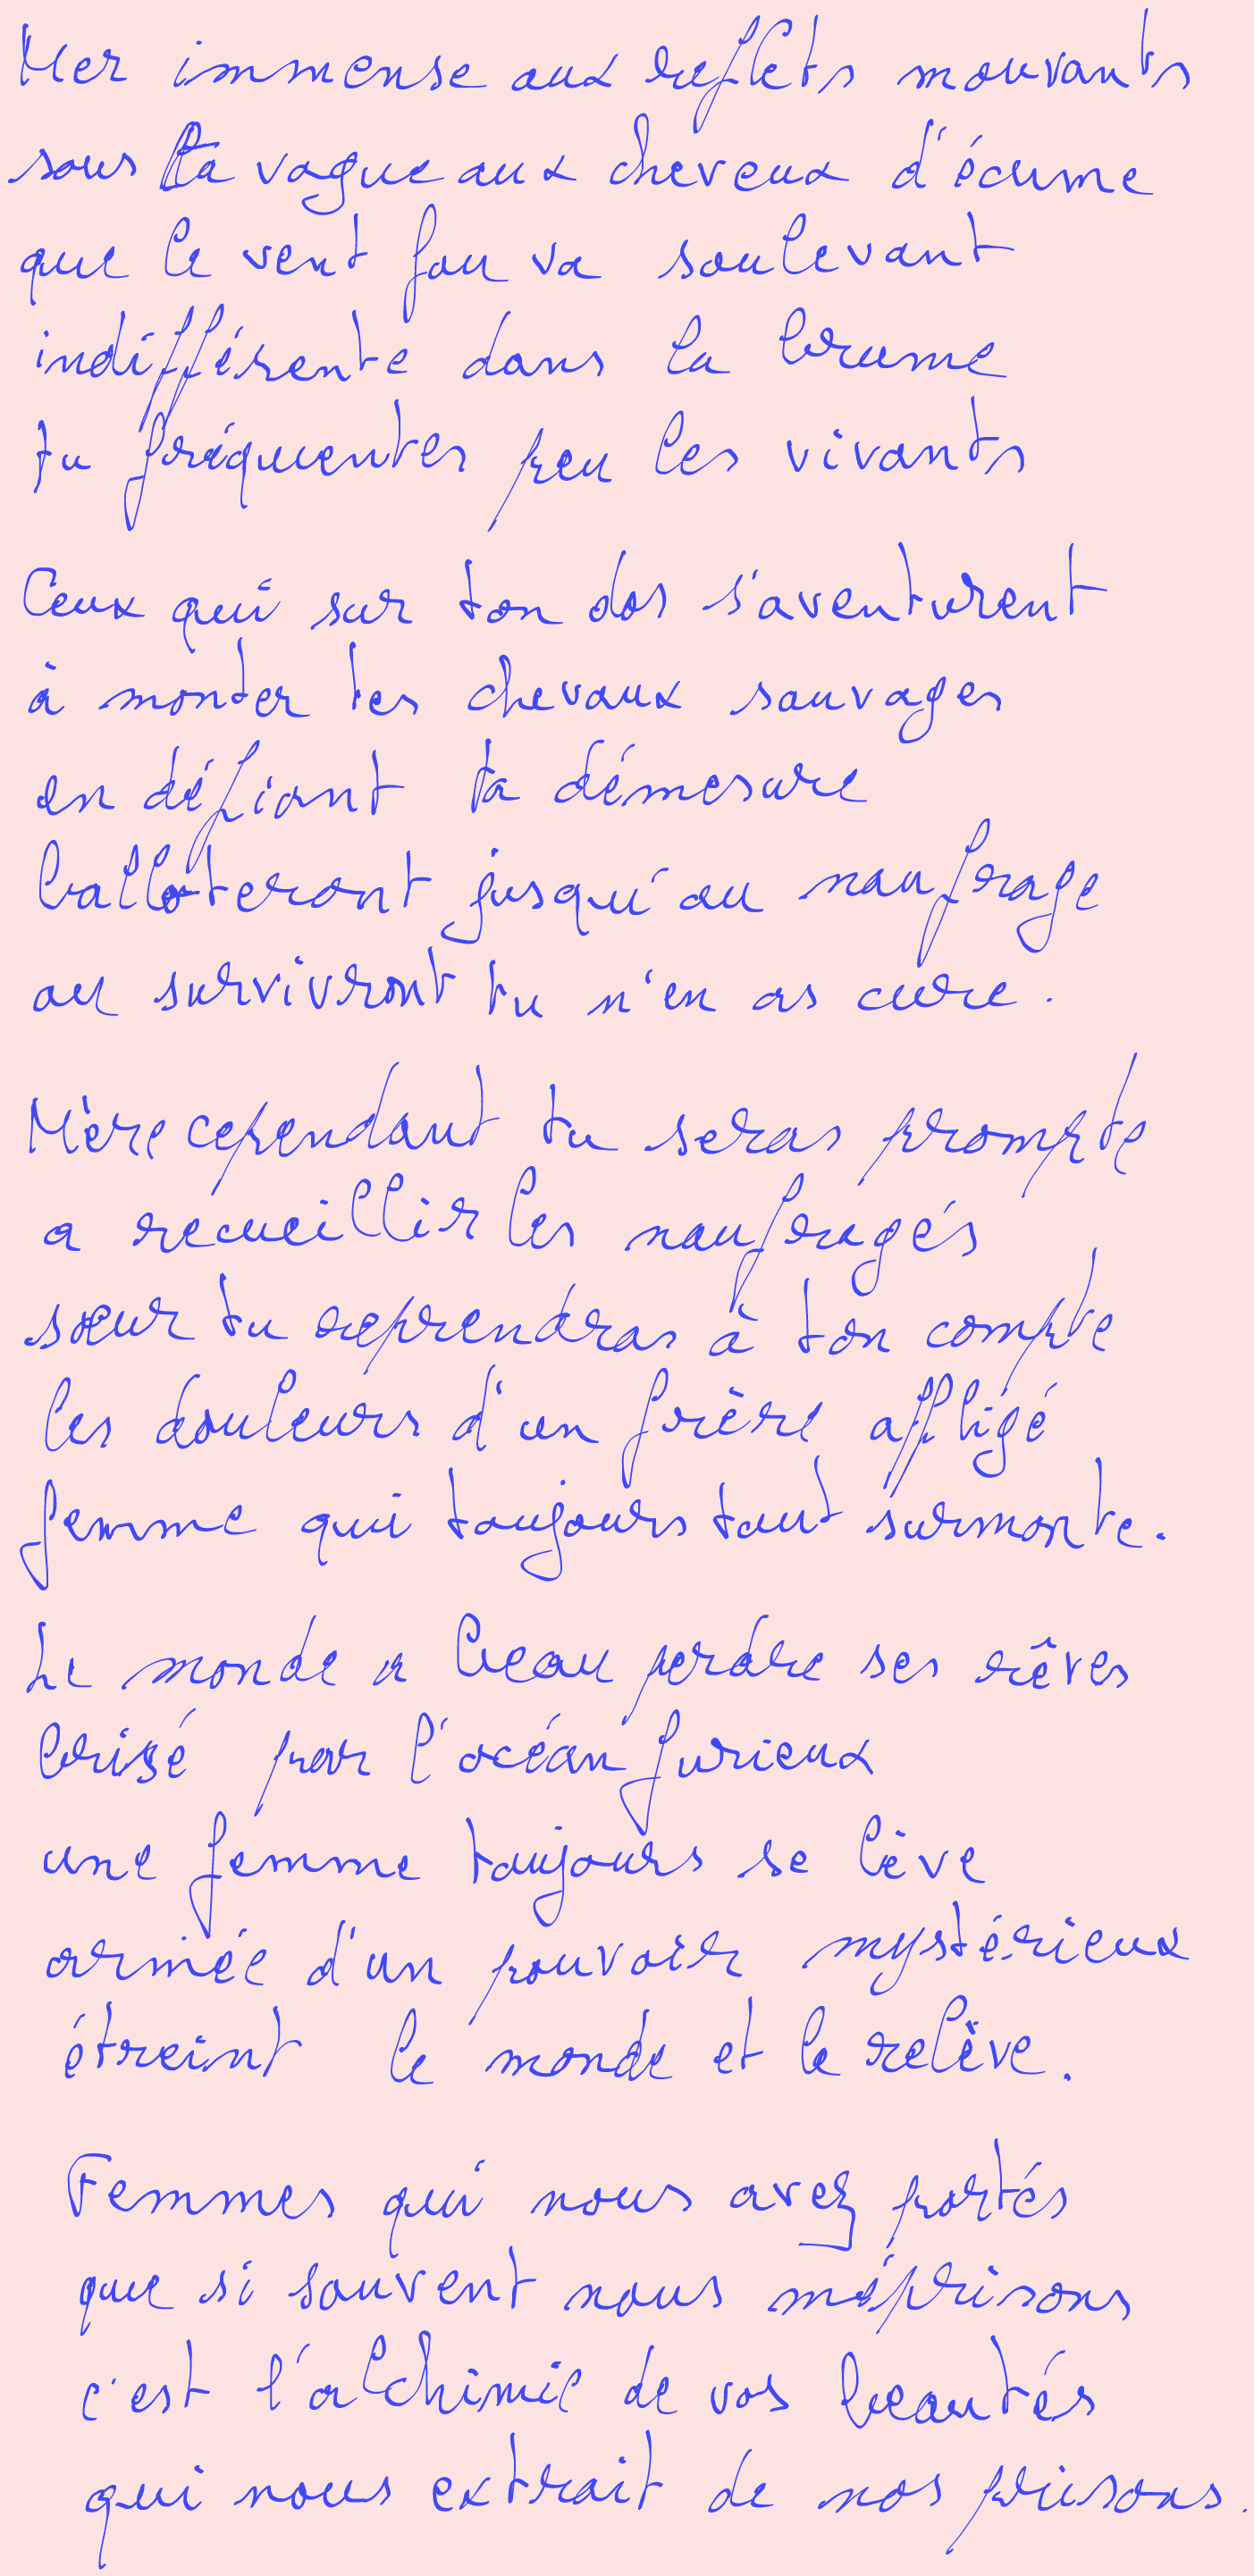 Mer immense aux reflets mouvants
sous ta vague aux cheveux d'écume
que le vent fou va soulevant
indifférente dans la brume
tu fréquentes peu les vivants
Ceux qui sur ton dos s'aventurent
à monter tes chevaux sauvages
en défiant ta démesure
balloteront jusqu'au naufrage
ou survivront tu n'en as cure.
Mère cependant tu seras prompte
a recueillir les naufragés
sœur tu reprendras à ton compte
les douleurs d'un frère affligé
femme qui toujours tout surmonte.
Le monde a beau perdre ses rêves
brisé par l'océan furieux
une femme toujours se lève
armée d'un pouvoir mystérieux
étreint le monde et le relève.
Femmes qui nous avez portés
que si souvent nous méprisons
c'est l'alchimie de vos beautés
qui nous extrait de nos prisons.